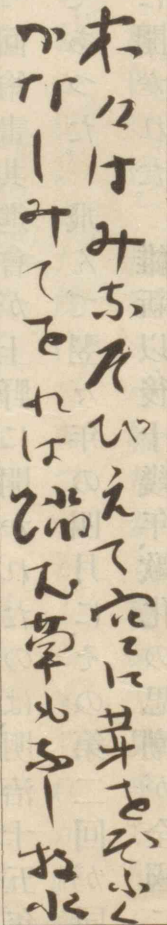 木々はみなそびえて空に芽をぞふく
かなしみてをれば踏む草もなし 牧水